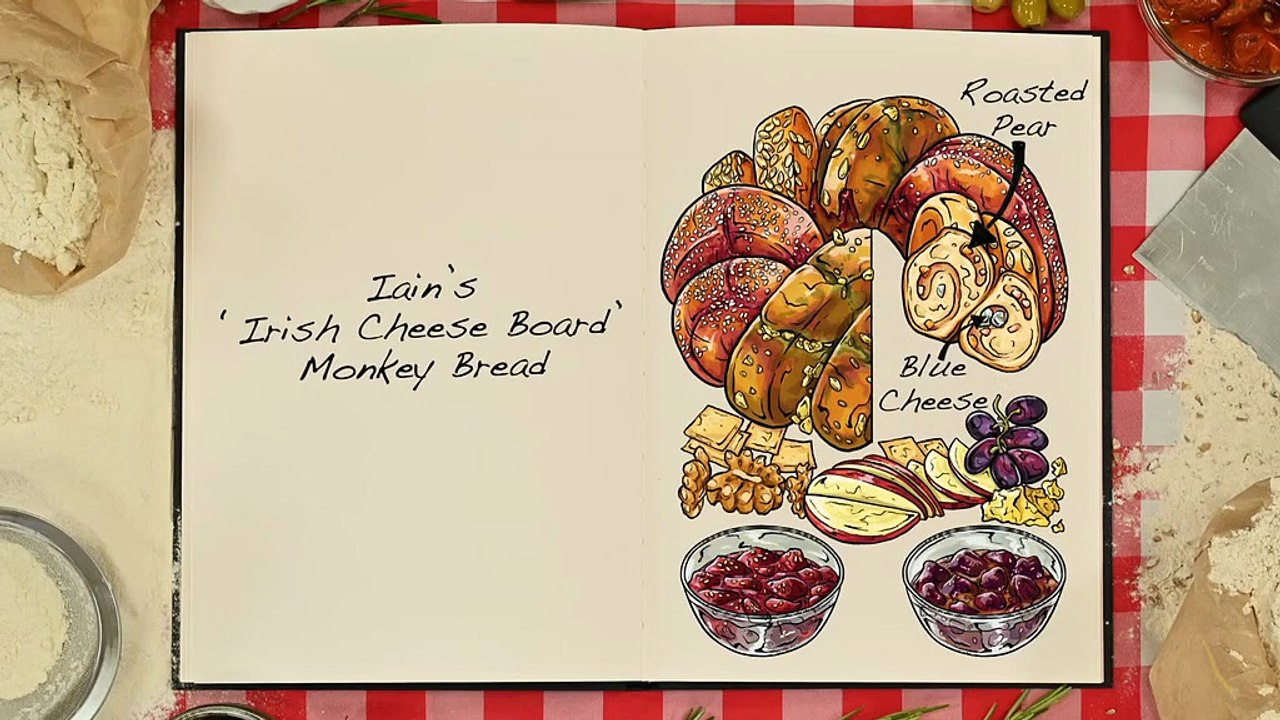 Iain's
'Irish Cheese Board'
Monkey Bread
Roasted
Pear
Blue
Cheese